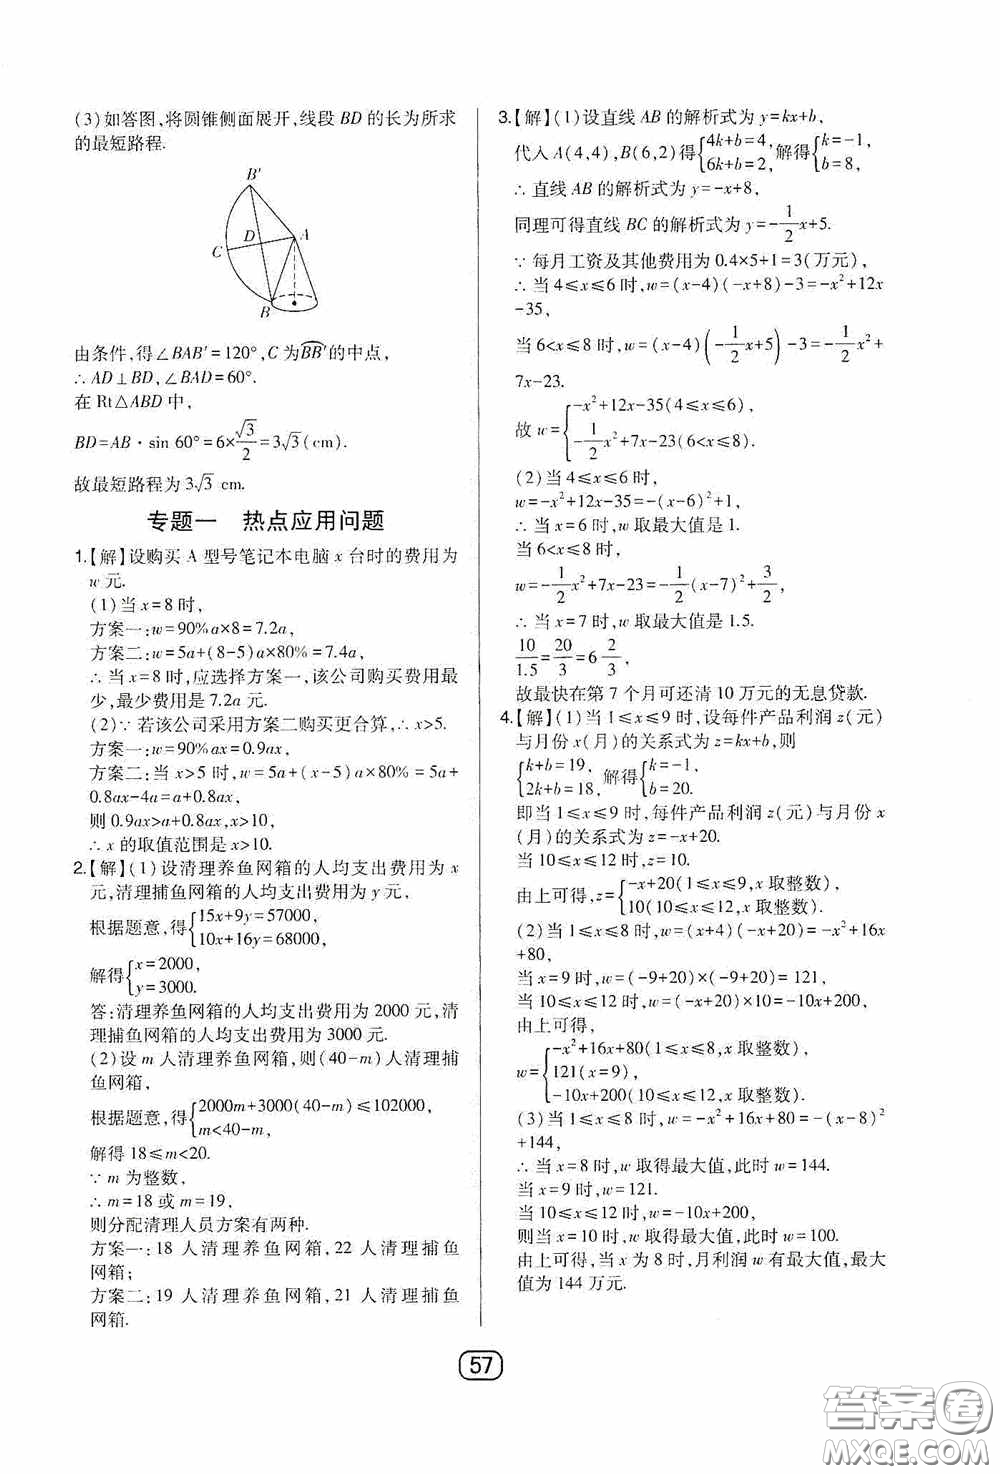 (3)如答图,将圆锥侧面展开,线段 BD 的长为所求
的最短路程.
B′
D
A
C
B
由条件,得∠BAB′=120°,C 为BB′的中点,
∴AD⊥BD,∠BAD=60°.
在 Rt△ABD 中,
BD=AB·sin 60°=6×√3/2=3√3(cm).
故最短路程为 3√3 cm.
专题一 热点应用问题
1.【解】设购买 A 型号笔记本电脑 x 台时的费用为
w 元.
(1)当 x=8 时,
方案一:w=90%a×8=7.2a,
方案二:w=5a+(8-5)a×80%=7.4a,
∴当 x=8 时,应选择方案一,该公司购买费用最
少,最少费用是 7.2a 元.
(2)∵若该公司采用方案二购买更合算,∴x>5.
方案一:w=90%ax=0.9ax,
方案二:当 x>5 时,w=5a+(x-5)a×80%=5a+
0.8ax-4a=a+0.8ax,
则 0.9ax>a+0.8ax,x>10,
∴x 的取值范围是 x>10.
2.【解】(1)设清理养鱼网箱的人均支出费用为 x
元,清理捕鱼网箱的人均支出费用为 y 元,
根据题意,得{15x+9y=57000,
10x+16y=68000,
解得{x=2000,
y=3000.
答:清理养鱼网箱的人均支出费用为 2000 元,清
理捕鱼网箱的人均支出费用为 3000 元.
(2)设 m 人清理养鱼网箱,则(40-m)人清理捕
鱼网箱,
根据题意,得{2000m+3000(40-m)≤102000,
m<40-m,
解得 18≤m<20.
∵m 为整数,
∴m=18 或 m=19,
则分配清理人员方案有两种.
方案一:18 人清理养鱼网箱,22 人清理捕鱼
网箱;
方案二:19 人清理养鱼网箱,21 人清理捕鱼
网箱.
3.【解】(1)设直线 AB 的解析式为 y=kx+b,
代人 A(4,4),B(6,2)得{4k+b=4, 6k+b=2, 解得{k=-1, b=8,
∴直线 AB 的解析式为 y=-x+8,
同理可得直线 BC 的解析式为 y=-1/2x+5.
∵每月工资及其他费用为 0.4×5+1=3(万元),
∴当 4≤x≤6 时,w=(x-4)(-x+8)-3=-x²+12x
-35,
当 6<x≤8 时,w=(x-4)(-1/2x+5)-3=-1/2x²+
7x-23.
故 w={-x²+12x-35(4≤x≤6),
-1/2x²+7x-23(6<x≤8).
(2)当 4≤x≤6 时,
w=-x²+12x-35=-(x-6)²+1,
∴当 x=6 时,w 取最大值是 1.
当 6<x≤8 时,
w=-1/2x²+7x-23=-1/2(x-7)²+3/2,
∴当 x=7 时,w 取最大值是 1.5.
10/1.5=20/3=6 2/3,
故最快在第 7 个月可还清 10 万元的无息贷款.
4.【解】(1)当 1≤x≤9 时,设每件产品利润 z(元)
与月份 x(月)的关系式为 z=kx+b,则
{k+b=19, 2k+b=18, 解得{k=-1, b=20.
即当 1≤x≤9 时,每件产品利润 z(元)与月份 x
(月)的关系式为 z=-x+20.
当 10≤x≤12 时,z=10.
由上可得,z={-x+20(1≤x≤9,x 取整数),
10(10≤x≤12,x 取整数).
(2)当 1≤x≤8 时,w=(x+4)(-x+20)=-x²+16x
+80,
当 x=9 时,w=(-9+20)×(-9+20)=121,
当 10≤x≤12 时,w=(-x+20)×10=-10x+200,
由上可得,
w={-x²+16x+80(1≤x≤8,x 取整数),
121(x=9),
-10x+200(10≤x≤12,x 取整数).
(3)当 1≤x≤8 时,w=-x²+16x+80=-(x-8)²
+144,
∴当 x=8 时,w 取得最大值,此时 w=144.
当 x=9 时,w=121.
当 10≤x≤12 时,w=-10x+200,
则当 x=10 时,w 取得最大值,此时 w=100.
由上可得,当 x 为 8 时,月利润 w 有最大值,最大
值为 144 万元.
57
答案圈
MXQE.COM